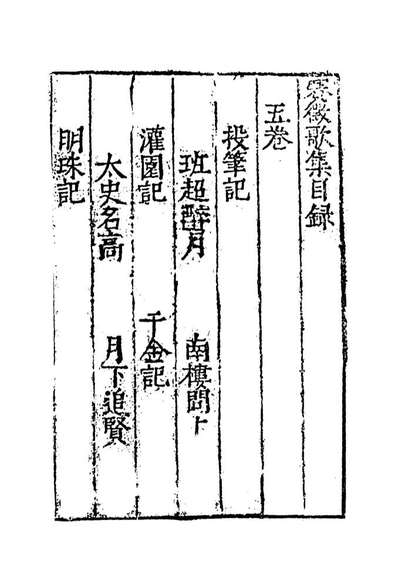 賽徵歌集目録
五巻
投筆記
班超醉月　南樓問卜
灌園記　千金記
太史名高　月下追賢
明珠記